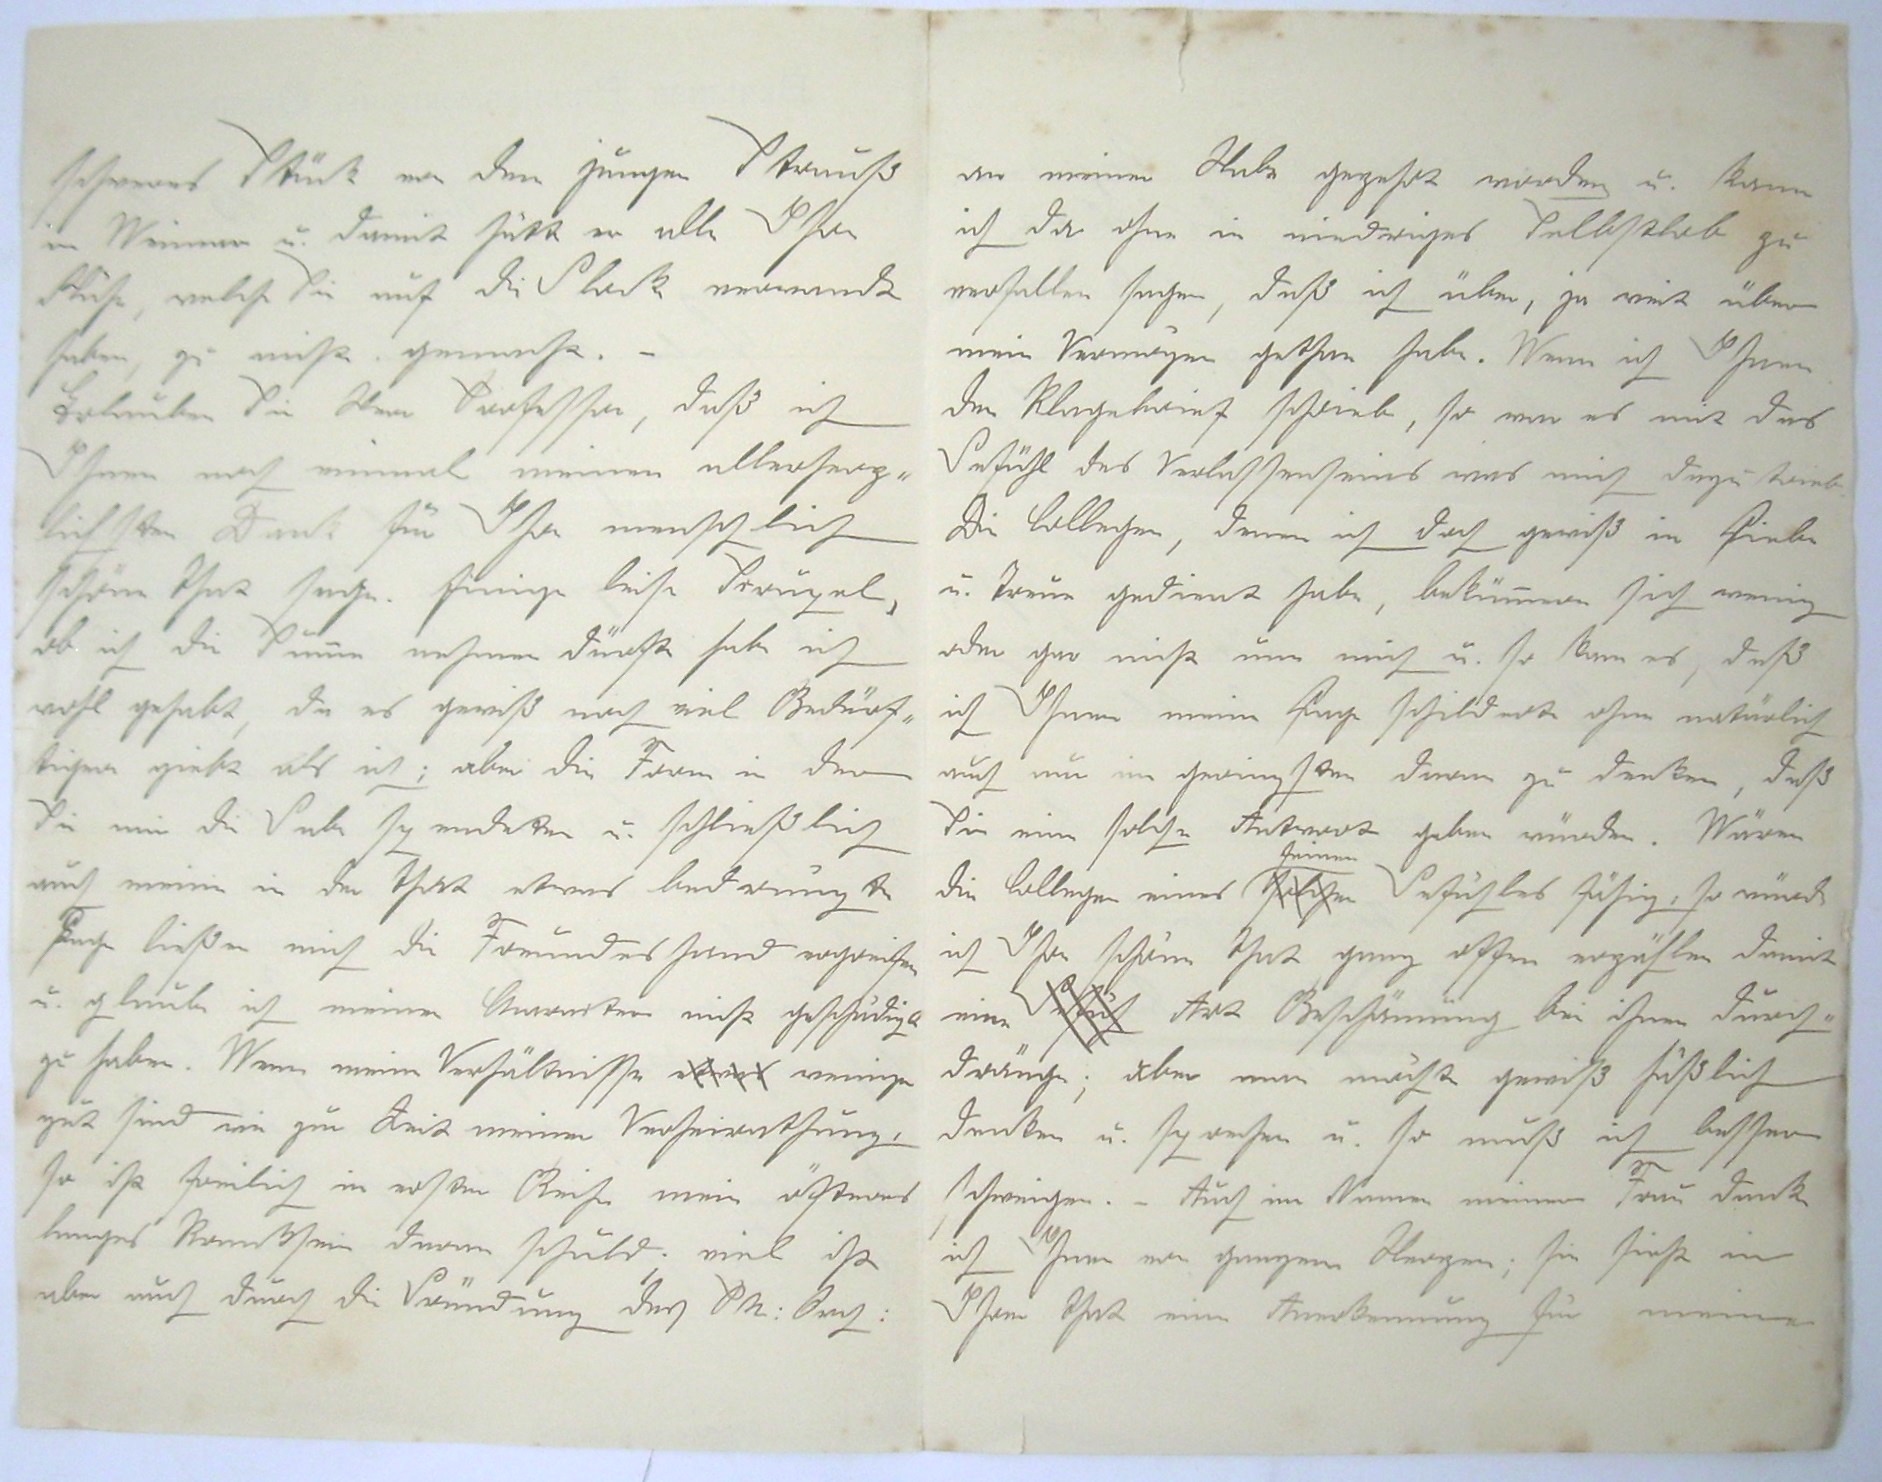 schweres Stück von dem jungen Strauß
in Weimar u. damit hätt er alle Ihre
Mühe, welche Sie auf die verwandt
haben, zu nicht gemacht. –
Erlauben Sie Herr Professor, daß ich
Ihnen noch einmal meinen allerherz-
lichsten Dank für Ihre menschlich
schöne That sage. Einige leise Skrupel,
ob ich die Summe nehmen dürfte habe ich
wohl gehabt, da es gewiß noch viel Bedürf-
tigere giebt als ich; aber die Form in der
Sie mir die Gabe spendeten u. schließlich
auch meine in der That etwas bedrängte
Lage ließen mich die Freundeshand ergreifen
u. glaube ich meinen Charakter nicht geschädigt
zu haben. Wenn meine Verhältnisse etwas weniger
gut sind wie zur Zeit meiner Verheirathung,
so ist freilich in erster Reihe mein öfteres
langes Kranksein daran schuld; viel ist
aber auch durch die Gründung des
an meiner Habe gezehrt worden u. kann
ich da ohne in niedriges Selbstlob zu
verfallen sagen, daß ich über, ja weit über
mein Vermögen gethan habe. Wenn ich Ihnen
den Klagebrief schrieb, so war es mit das
Gefühl des Verlassenseins was mich dazu trieb.
Die Collegen, denen ich doch gewiß in Liebe
u. Treue gedient habe, bekümmern sich wenig
oder gar nicht um mich u. so kam es, daß
ich Ihnen meine Lage schilderte ohne natürlich
auch nur im geringsten daran zu denken, daß
Sie eine solche Antwort geben würden. Wären
die Collegen eines solchen feinen Gefühles fähig, so würde
ich Ihre schöne That ganz offen erzählen damit
eine Art Beschämung bei ihnen durch-
dränge; aber man möchte gewiß häßlich
denken u. sprechen u. so muß ich besser
schweigen. – Auch im Namen meiner Frau danke
ich Ihnen von ganzem Herzen; sie sieht in
Ihrer That eine Anerkennung für meine